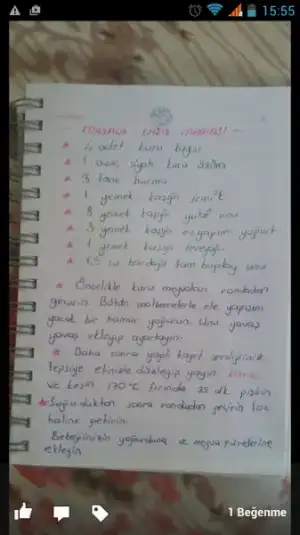 15:55
4 adet kuru
1 siyah kuru üzüm
3 tane hurma
1 yemek kaşığı irmik
3 yemek kaşığı yulaf unu
3 yemek kaşığı ev yapımı yoğurt
1 yemek kaşığı tereyağı
1,5 su bardağı tam buğday unu
Öncelikle kuru meyveleri rondodan
geçirin. Bütün malzemelerle ele yapışma
yacak bir hamur yoğurun. Unu yavaş
yavaş ekleyip ayarlayın.
Daha sonra yağlı kağıt serdiğiniz
tepsiye elinizle düzleyip yayın.
ve kesin 170°C fırında 25 dk pişirin
Soğuduktan sonra rondodan geçirip toz
haline getirin.
Bebeğinizin yoğurduna ve meyve pürelerine
ekleyin
1 Beğenme